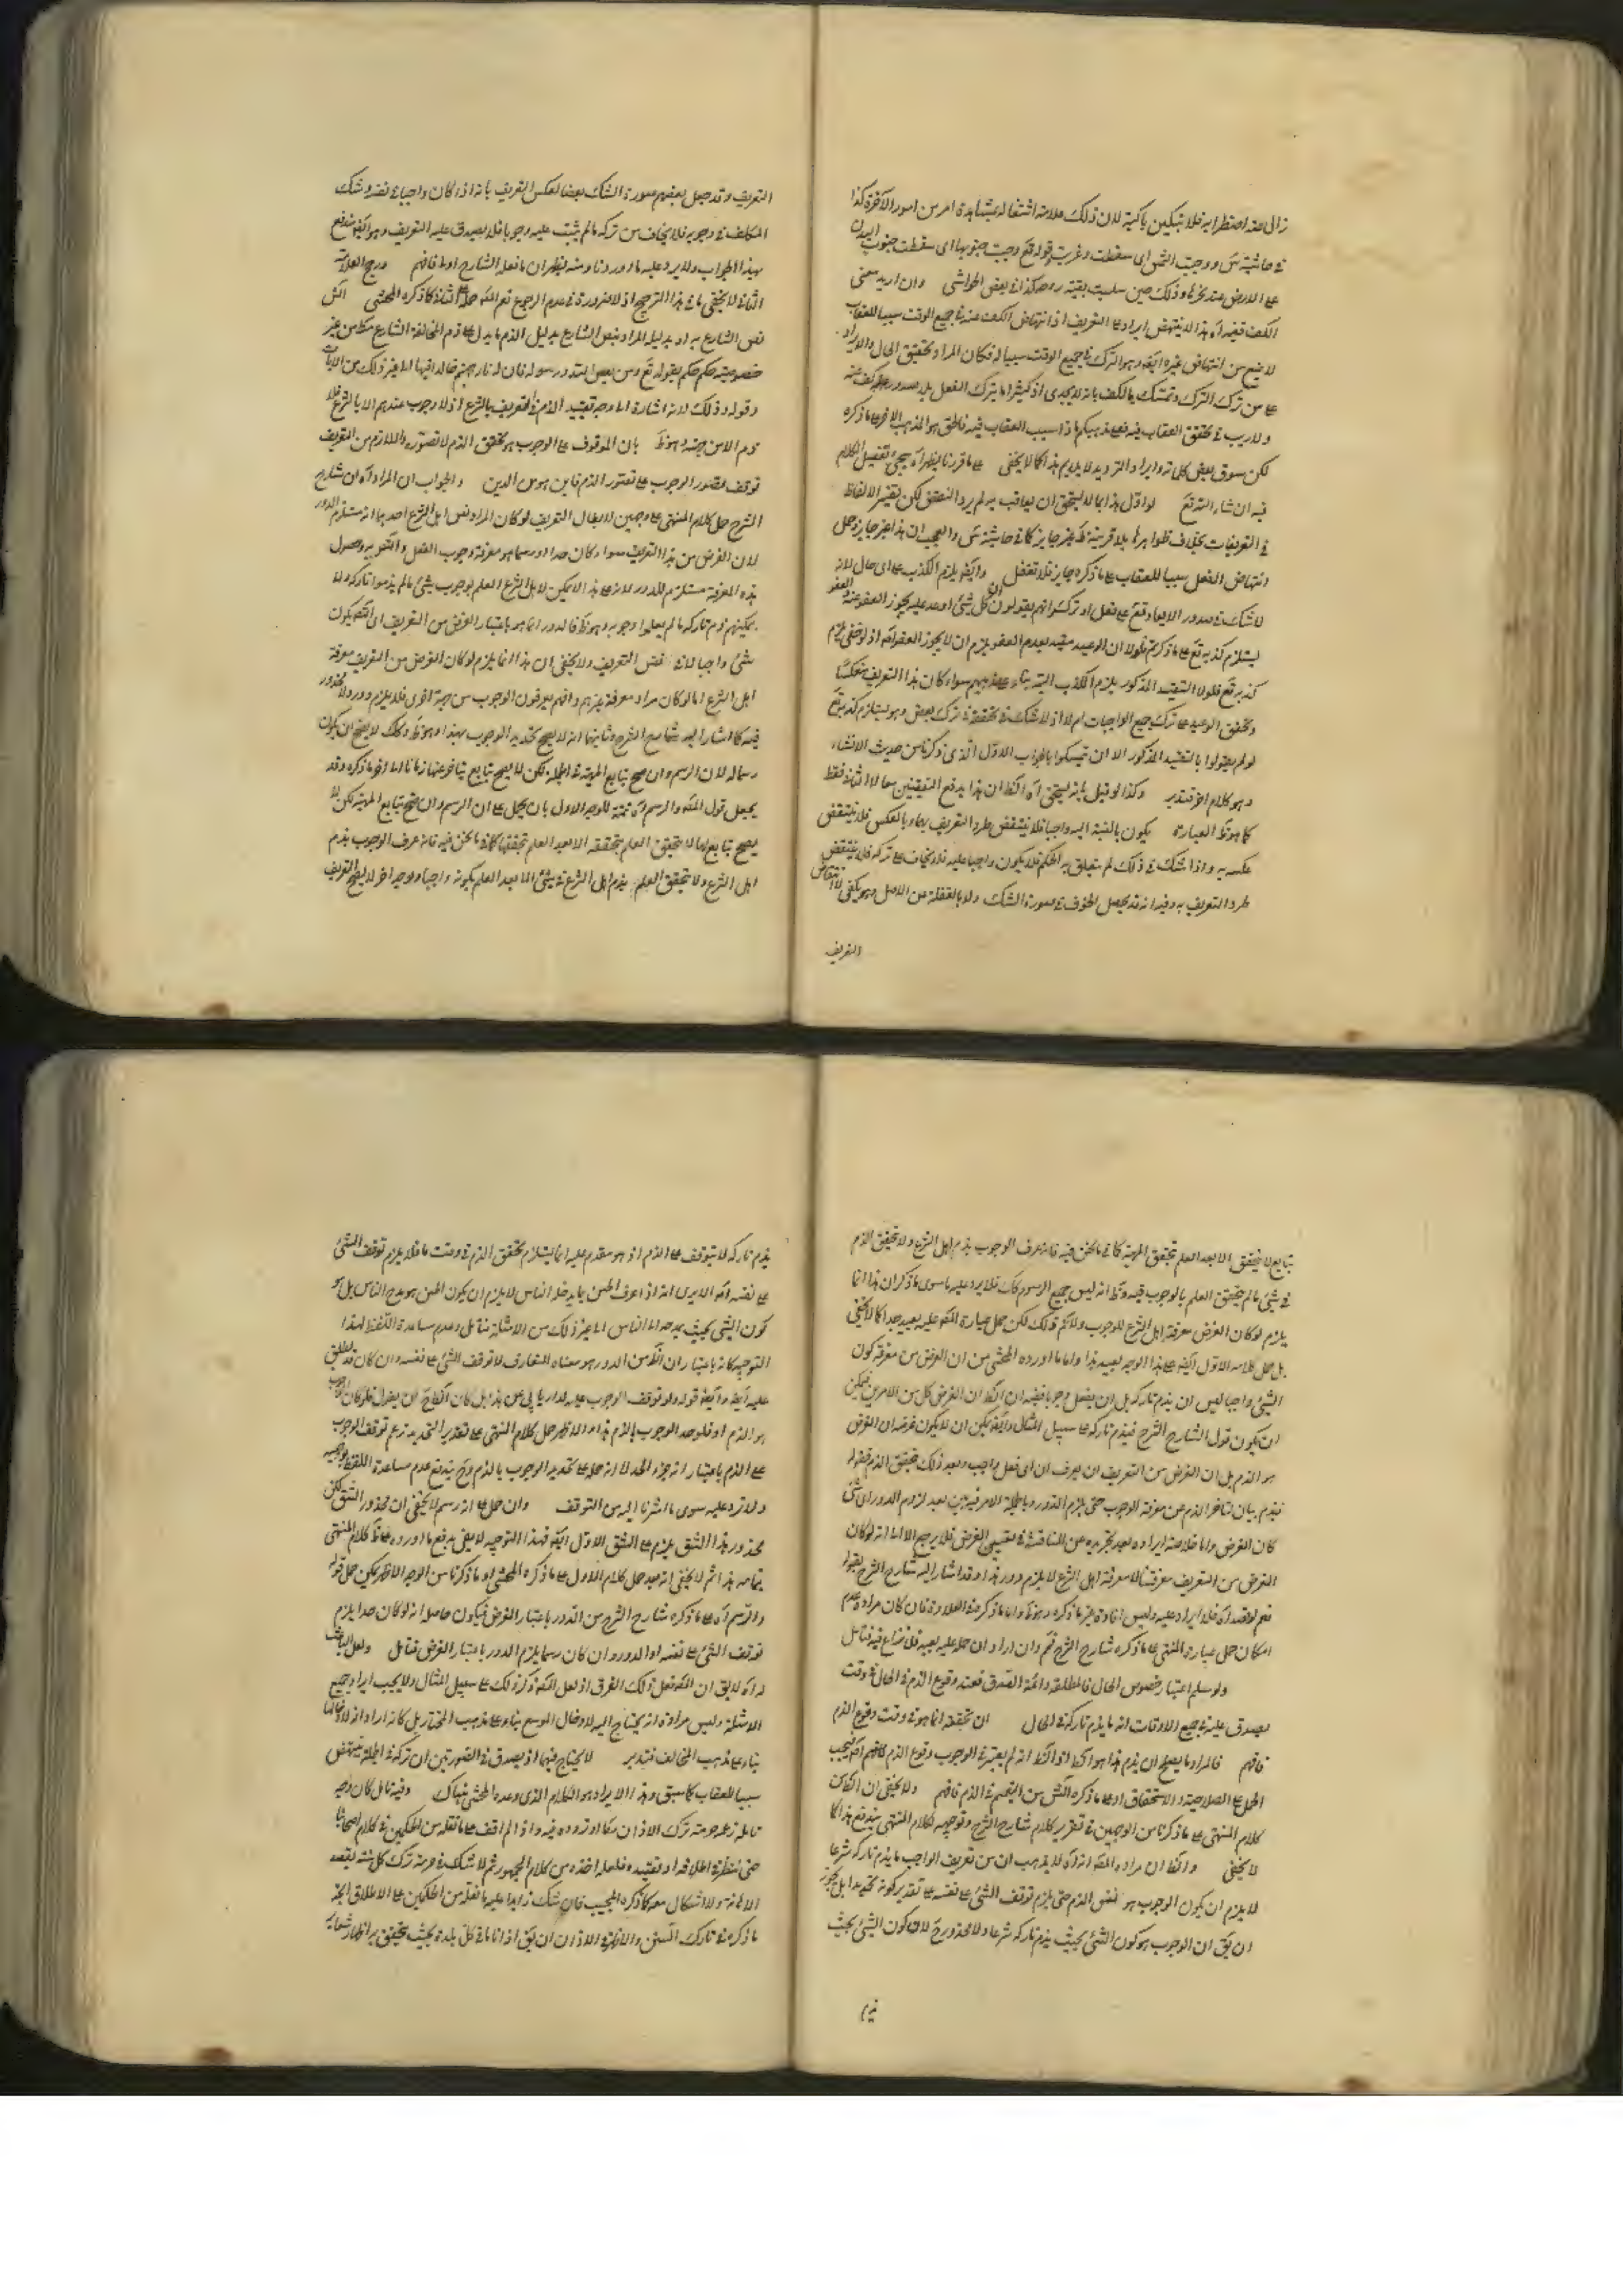 زال عنه اضطرابه فلا تبكين باكية لان ذلك علامة اشتغاله بمشاهدة امر من امور الآخرة كذا
في حاشية س ووجبت الشمس اى سقطت وغربت قوله تع وجبت جنوبها اى سقطت جنوب البدن
على الارض عند نحرها وذلك حين سلبت بقية روحه كذا في بعض الحواشى وان اريد معنى
الكف ففيه آه هذا لا ينتهض ايرادا على التعريف اذ انتهاض الكف عنه في جميع الوقت سببا للعقاب
لا يمنع من انتهاض غيره ايضا وهو الترك في جميع الوقت سببا له فكان المراد تحقيق الحال والايراد
على من ترك الترك وتمسك بالكف بانه لا يجدى اذ كثيرا ما يترك الفعل بل صدور كف عنه
ولا ريب في تحقق العقاب فيه فعلى مذهبكم ما ذا سبب العقاب فيه
لكن سوق بعض كلماته وايراد الترديد لا يلايم هذا كما لا يخفى على ما قررنا يظهر آه سيجئ تفصيل الكلام
فيه ان شاء الله تع لو اول هذا بما لا يستحق ان يعاقب به لم يرد النقض لكن تغيير الالفاظ
في التعريفات بخلاف ظواهرها بلا قرينة غير جايز كما في حاشية س والعجب ان هذا غير جايز وحمل
انتهاض الفعل سببا للعقاب على ما ذكره جايز فلا تغفل وايضا يلزم الكذب على اى حال لانه
لا شك في صدور الايعاد تع على فعل او ترك
يستلزم كذبه تع على ما ذكرتم فلولا ان الوعيد مقيد بعدم العفو يلزم ان لا يجوز العفو
كذبه تع فلولا التقييد المذكور يلزم الكذب البتة بناء على مذهبهم سواء كان هذا التعريف منعكسا
وتحقق الوعيد على ترك جميع الواجبات ام لا اذ لا شك في تحققه في ترك بعض وهو يستلزم كذبه تع
لو لم يقولوا بالتقييد المذكور الا ان يتمسكوا بالجواب الاول الذى ذكرنا من حديث الانشاء
وهو كلام آخر فتدبر وكذا لو قيل بانه يستحق آه الظ ان هذا يدفع النقيضين معا لا الثانى فقط
كما هو ظ العبارة يكون بالنسبة اليه واجبا فلا ينتقض طرد التعريف بها وبالعكس فلا ينتقض
عكسه به واذا شك في ذلك لم يتعلق به الحكم فلا يكون واجبا عليه فلا يخاف على تركه فلا ينتقض
طرد التعريف به وفيه انه قد يحصل الخوف في صورة الشك ولا بالغفلة عن الاصل وهو يكفى لانتقاض
التعريف
التعريف وقد جعل بعضهم صورة الشك نقضا لعكس التعريف بانه اذا كان واجبا في نفسه وشك
المكلف في وجوبه فلا يخاف من تركه ما لم يثبت عليه وجوبا فلا يصدق عليه التعريف وهو ايضا مندفع
بهذا الجواب ولا يرد عليه ما اوردنا ومنه يظهر ان ما فعله الشارح اولى فافهم ورجح العلامة
الثانى لا يخفى ما في هذا الترجيح اذ لا ضرورة في عدم الرجوع نعم الظ حمله على الثانى كما ذكره المحشى
نص الشارع به او بدليل المراد بنص الشارع بدليل الذم ما يدل على ذم المخالفة الشارع مطلقا من غير
خصوصية حكم حكم بقوله تع ومن يعص الله ورسوله فان له نار جهنم خالدا فيها الى غير ذلك من الآيات
وقوله وذلك لانه اشارة الى وجه تقييد الذم في التعريف بالشرع اذ لا وجوب عندهم الا بالشرع فلا
ذم الا من جهته وهو ظ بان الموقوف على الوجوب هو تحقق الذم لا تصوره واللازم من التعريف
توقف تصور الوجوب على تصور الذم فاين هو من الدين والجواب ان المراد آه ان شارح
الشرح حمل كلام المنتهى على وجهين لابطال التعريف لو كان المراد نص اهل الشرع احدهما انه مستلزم الدور
لان الغرض من هذا التعريف سواء كان حدا او رسما هو معرفة وجوب الفعل والتعريف وحصول
هذه المعرفة مستلزم للدور لانه على هذا لا يمكن لاهل الشرع العلم بوجوب شئ ما لم يذموا تاركه ولا
يمكنهم ذم تاركه ما لم يعلموا وجوبه وهو ظ فالدور انما هو باعتبار الغرض من التعريف اى التصديق بكون
شئ واجبا لا في نفس التعريف ولا يخفى ان هذا انما يلزم لو كان الغرض من التعريف معرفة
اهل الشرع اما لو كان مراده معرفة غيرهم وانهم يعرفون الوجوب من جهة اخرى فلا يلزم دور ولا محذور
فيه كما اشار اليه شارح الشرح وثانيهما انه لا يصح تحديد الوجوب بهذا وهو ظ وكذلك لا يصح ان يكون
رسما له لان الرسم وان صح بتابع المهية في الجملة لكن لا يصح بتابع يتاخر عنها زمانا الى آخر ما ذكره وقد
يجعل قول المص والرسم آه تتمة للوجه الاول بان يحمل على ان الرسم وان صح بتابع المهية لكن لا
يصح بتابع لها لا يتحقق العلم بتحققه الا بعد العلم بتحققها كما في ما نحن فيه فانه عرف الوجوب بذم
اهل الشرع ولا يتحقق العلم بذم اهل الشرع في شئ الا بعد العلم بكونه واجبا ولوجه آخر لا يصح التعريف
بتابع لا يتحقق الا بعد العلم بتحقق المهية كما في ما نحن فيه فانه عرف الوجوب بذم اهل الشرع ولا يتحقق الذم
في شئ ما لم يتحقق العلم بالوجوب فيه وظ انه ليس جميع الرسوم كك فلا يرد عليه ما سوى ما ذكر ان هذا انما
يلزم لو كان الغرض معرفة اهل الشرع للوجوب ولا ثم كذلك لكن حمل عبارة المص عليه بعيد جدا كما لا يخفى
بل حمل كلامه الاول ايضا على هذا الوجه بعيد هذا واما ما اورده المحشى من ان الغرض من معرفة كون
الشئ واجبا ليس ان يذم تاركه بل ان يفعل وجوبا ففيه ان الظ ان الغرض كل من الامرين فيمكن
ان يكون قول الشارح الشرح فيذم تاركه على سبيل المثال وايضا يمكن ان لا يكون غرضه ان الغرض
هو الذم بل ان الغرض من التعريف ان يعرف ان اى فعل واجب وبعد ذلك يتحقق الذم فقوله
فيذم بيان لتاخر الذم عن معرفة الوجوب حتى يلزم الدور وبالجملة الامر فيه هين بعد لزوم الدور اى شئ
كان الغرض واما خلاصة ايراده بعد تجريده عن المناقشة في تعيين الغرض فلا يرجع الا الى انه لو كان
الغرض من التعريف معرفتنا لا معرفة اهل الشرع لا يلزم دور هذا وقد اشار اليه شارح الشرح بقوله
نعم لو قصد آه فلا ايراد عليه وليس افادة غير ما ذكره وهو ظ واما ما ذكره في العلاوة فان كان مراده عدم
امكان حمل عبارة المنتهى على ما ذكره شارح الشرح فثم وان اراد ان حمله عليه بعيد فلا نزاع فيه فتامل
ولو سلم اعتبار خصوص الحال فالمطلقة دائمة الصدق فعند وقوع الذم في الحال في وقت
يصدق عليه في جميع الاوقات انه ما يذم تاركه في الحال ان تحققه انما هو في وقت وقوع الذم
فافهم فالمراد ما يصح ان يذم هذا هو الظ اذ الظ انه لم يعتبر في الوجوب وقوع الذم فافهم
الحمل على الصلاحية والاستحقاق اولى ما ذكره الش من التعميم في الذم فافهم ولا يخفى ان الظ من
كلام المنتهى على ما ذكرنا من الوجهين في تقرير كلام شارح الشرح وتوجيهه لكلام المنتهى يندفع هذا كما
لا يخفى والظ ان مراده المص انه آه لا يذهب ان من تعريف الواجب ما يذم تاركه شرعا
لا يلزم ان يكون الوجوب هو نفس الذم حتى يلزم توقف الشئ على نفسه على تقدير كونه تحديدا بل يجوز
ان يق ان الوجوب هو كون الشئ بحيث يذم تاركه شرعا ولا محذور ح لان كون الشئ بحيث
يذم
يذم تاركه لا يتوقف على الذم اذ هو مقدم عليه انما يستلزم تحقق الذم في وقت ما فلا يلزم توقف الشئ
على نفسه آه الا يرى انه اذا عرف الحسن بما يمدحه الناس لا يلزم ان يكون الحسن هو مدح الناس بل هو
كون الشئ بحيث يمدحه الناس الى غير ذلك من الامثلة فتامل وعدم مساعدة اللفظ لهذا
التوجيه كانه باعتبار ان الظ من الدور هو معناه المتعارف لا توقف الشئ على نفسه وان كان قد يطلق
عليه ايضا وايضا قوله ولو توقف الوجوب عليه لدار يابى عن هذا بل كان الظ ح ان يقول فلو كان الوجوب
هو الذم او فلو حد الوجوب بالذم هذا والاظهر حمل كلام المنتهى على تقدير التحديد توقف الوجوب
على الذم باعتبار انه جزء الحد لا انه حمله على تحديد الوجوب بالذم وح يندفع عدم مساعدة اللفظ
ولا يرد عليه سوى ما اشرنا اليه من التوقف وان حمل على انه رسم لا يخفى ان محذور الشق
محذور هذا الشق يلزم على الشق الاول ايضا فهذا التوجيه لا يفى بدفع ما اورده على ظ كلام المنتهى
بتمامه هذا ثم لا يخفى انه بعد حمل كلام الاول على ما ذكره المحشى او ما ذكرنا من الوجه الاظهر يمكن حمل قوله
والرسم آه على ما ذكره شارح الشرح من الدور باعتبار الغرض فيكون حاصله انه لو كان حدا يلزم
توقف الشئ على نفسه او الدور وان كان رسما يلزم الدور باعتبار الغرض فتامل ولعل الباعث
له آه لا يق ان المص فعل ذلك الفرق اذ لعل المص ذكر ذلك على سبيل المثال ولا يجب ايراد جميع
الامثلة وليس مراده انه يحتاج اليه لادخال الموسع بناء على مذهب المختار بل كانه اراد
بناء على مذهب المخالف فتدبر لا يحتاج فيهما اذ يصدق في الصورتين ان تركه في الجملة ينتهض
سببا للعقاب كما سبق وهذا الايراد هو الكلام الذى وعده المحشى هناك وفيه تامل كان وجه
تامله زعم حرمة ترك الاذان مطلقا وتردده فيه واذ لم اقف على ما نقله من الحكمين في كلام اصحابنا
حتى ننظر في اطلاقه او تقييده فلعله اخذه من كلام الجمهور ثم لا شك في حرمة ترك كل سنة بقصد
الاهانة ولا اشكال معه كما ذكره المجيب فان شك ذاهبا عليه ما نقله من الحكمين على الاطلاق
ما ذكره في تارك السنن والاظهر في الاذان ان يق اذا اقامه في كل بلدة بحيث يتحقق به اظهار شعاره